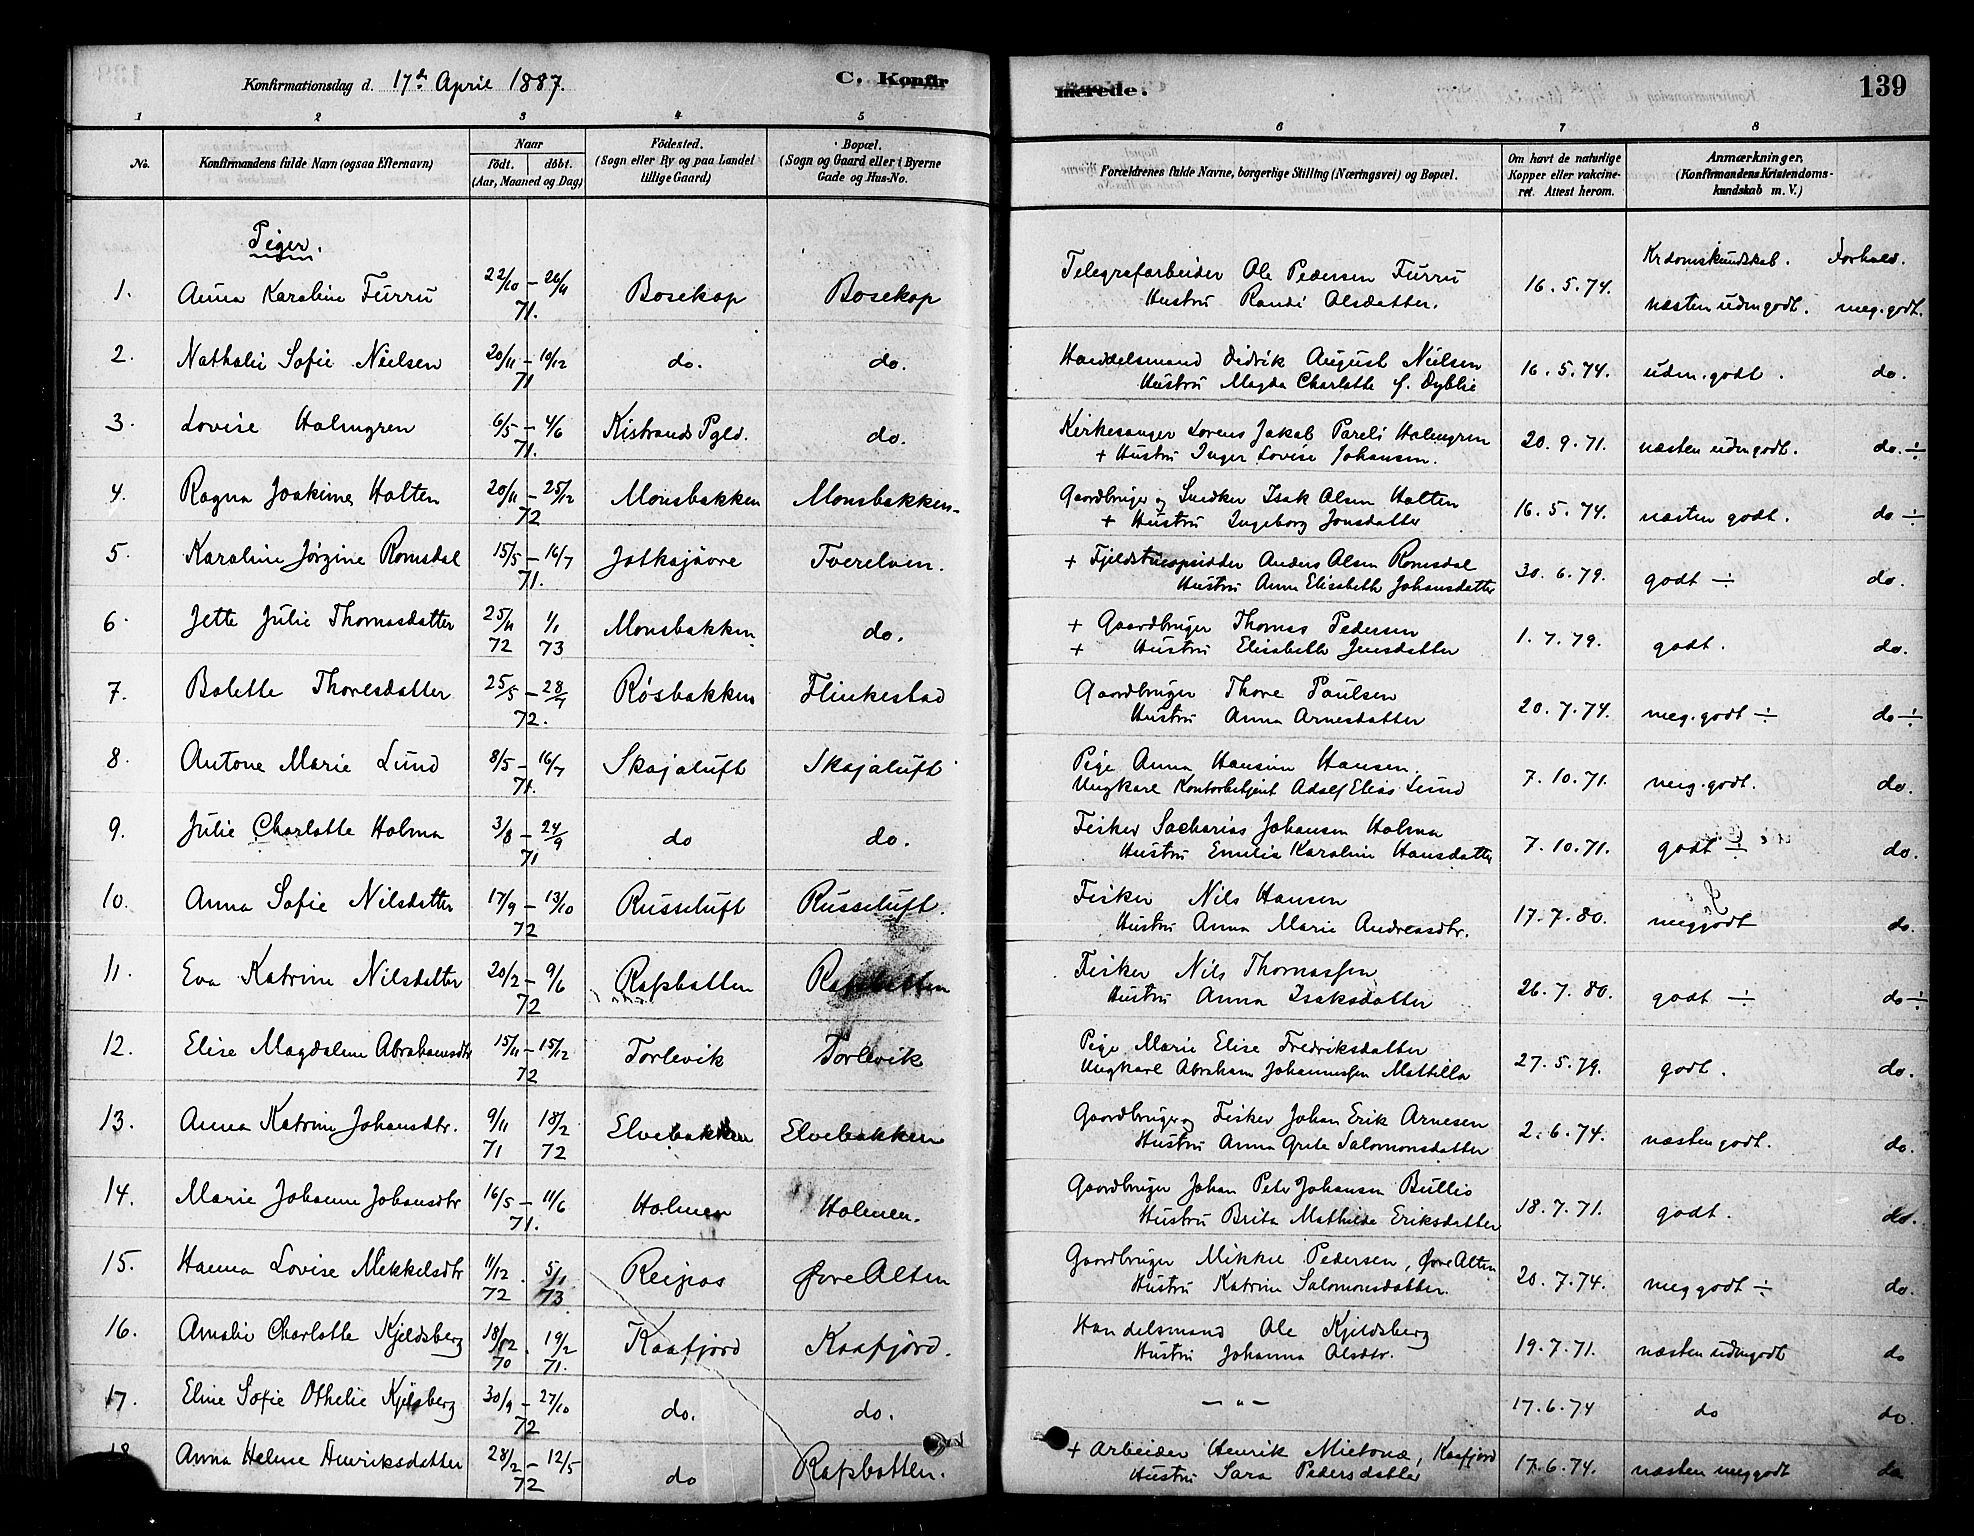 Konfirmationsdag d. 17de April 1887. C. Konfirmerede. 139
1 2 3 4 5 6 7 8
No. Konfirmandens fulde Navn (ogsaa Efternavn) Naar födt. döbt. (Aar, Maaned og Dag) Födested. (Sogn eller By og paa Landet tillige Gaard) Bopæl. (Sogn og Gaard eller i Byerne Gade og Hus-No. Forældrenes fulde Navne, borgerlige Stilling (Næringsvei) og Bopæl. Om havt de naturlige Kopper eller vakcineret. Attest herom. Anmærkninger. (Konfirmandens Kristendomskundskab m. V.)
Piger. Krdomskundskab. Forhold.
1. Anna Karoline Furru 22/10 – 26/11 71. Bosekop Bosekop Telegrafarbeider Ole Pedersen Furru 16.5.74. næsten udmgodt. meg.godt.
Hustru Randi Olsdatter.
2. Nathalie Sofie Nielsen 20/11 – 10/12 71 do. do. Handelsmand Didrik August Nielsen 16.5.74. udm.godt. do.
Hustru Magda Charlotte f. Dyblie
3. Lovise Holmgren 6/5 – 4/6 71. Kistrands Pgld. do. Kirkesanger Lorens Jakob Pareli Holmgren 20.9.71. næsten udmgodt. do. ÷
+ Hustru Inger Lovise Johansen.
4. Ragna Joakime Holten 20/11 – 25/12 72 Monsbakken Monsbakken Gaardbruger og Snedker Isak Olsen Holten 16.5.74. næsten godt. do ÷
+ Hustru Ingeborg Jonsdatter
5. Karoline Jørgine Romsdal 15/5 – 16/7 71. Jotkajavre Tverelven. + Fjeldstueopsidder Anders Olsen Romsdal 30.6.79. godt ÷ do.
Hustru Anna Elisabeth Johansdatter
6. Jette Julie Thomasdatter 25/11 72 1/1 73 Monsbakken do. + Gaardbruger Thomas Pedersen 1.7.79. godt. do.
+ Hustru Elisabeth Jensdatter
7. Bolette Thoresdatter 25/5 – 28/7 72. Røsbakken Flinkestad Gaardbruger Thore Paulsen 20.7.74. meg.godt ÷ do ÷
Hustru Anna Arnesdatter
8. Antone Marie Lund 8/5 – 16/7 71. Skojaluft Skojaluft Pige Anna Hansine Hansen. 7.10.71. meg.godt. do.
Ungkarl Kontorbetjent Adolf Elias Lund
9. Julie Charlotte Holma 3/8 – 24/9 71 do do. Fisker Sacharias Johansen Holma 7.10.71. godt ÷ do.
Hustru Emilie Karoline Hansdatter
10. Anna Sofie Nilsdatter 17/9 – 13/10 72 Russeluft Russeluft. Fisker Nils Hansen 17.7.80. meg godt do.
Hustru Anna Marie Andreasdtr.
11. Eva Katrine Nilsdatter 20/2 – 9/6 72 Rafsbotten Rafsbotten Fisker Nils Thomassen 26.7.80. godt ÷ do ÷
Hustru Anna Isaksdatter
12. Elise Magdalene Abrahamsdtr 15/11 – 15/12 72 Torlevik Torlevik Pige Marie Elise Fredriksdatter 27.5.79. godt. do.
Ungkarl Abraham Johannessen Mattilla
13. Anna Katrine Johansdtr. 9/11 71 18/2 72 Elvebakken Elvebakken Gaardbruger og Fisker Johan Erik Arnesen 2.6.74. næsten godt. do.
Hustru Anna Grete Salomonsdatter
14. Marie Johanne Johansdtr 16/5 – 11/6 71. Holmen Holmen. Gaardbruger Johan Peter Johansen Bullio 18.7.71. godt. do.
Hustru Brita Mathilde Eriksdatter
15. Hanna Lovise Mikkelsdtr 11/12 72 5/1 73 Reipas Øvre Alten Gaardbruger Mikkel Pedersen, Øvre Alten 20.7.74. meg godt ÷ do.
Hustru Katrine Salomonsdatter.
16. Amalie Charlotte Kjeldsberg 18/12 70 19/2 71. Kaafjord Kaafjord. Handelsmand Ole Kjeldsberg 19.7.71. næsten udmgodt do
Hustru Johanna Olsdtr.
17. Eline Sofie Othelie Kjelsberg 30/9 – 27/10 72 do. do. – " – 17.6.74 do do.
18 Anna Helene Henriksdatter 28/2 – 12/5 72 do Rafsbotten. + Arbeider Henrik Mietonæ, Kaafjord 17.6.74. næsten meg godt do
Hustru Sara Pedersdatter